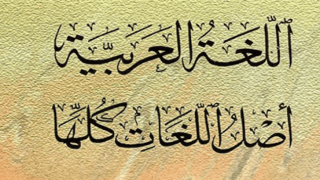 ٱللّغَةُ العَرَبيَّة
أصْلُ ٱللّغَاتِ كُلّهَا